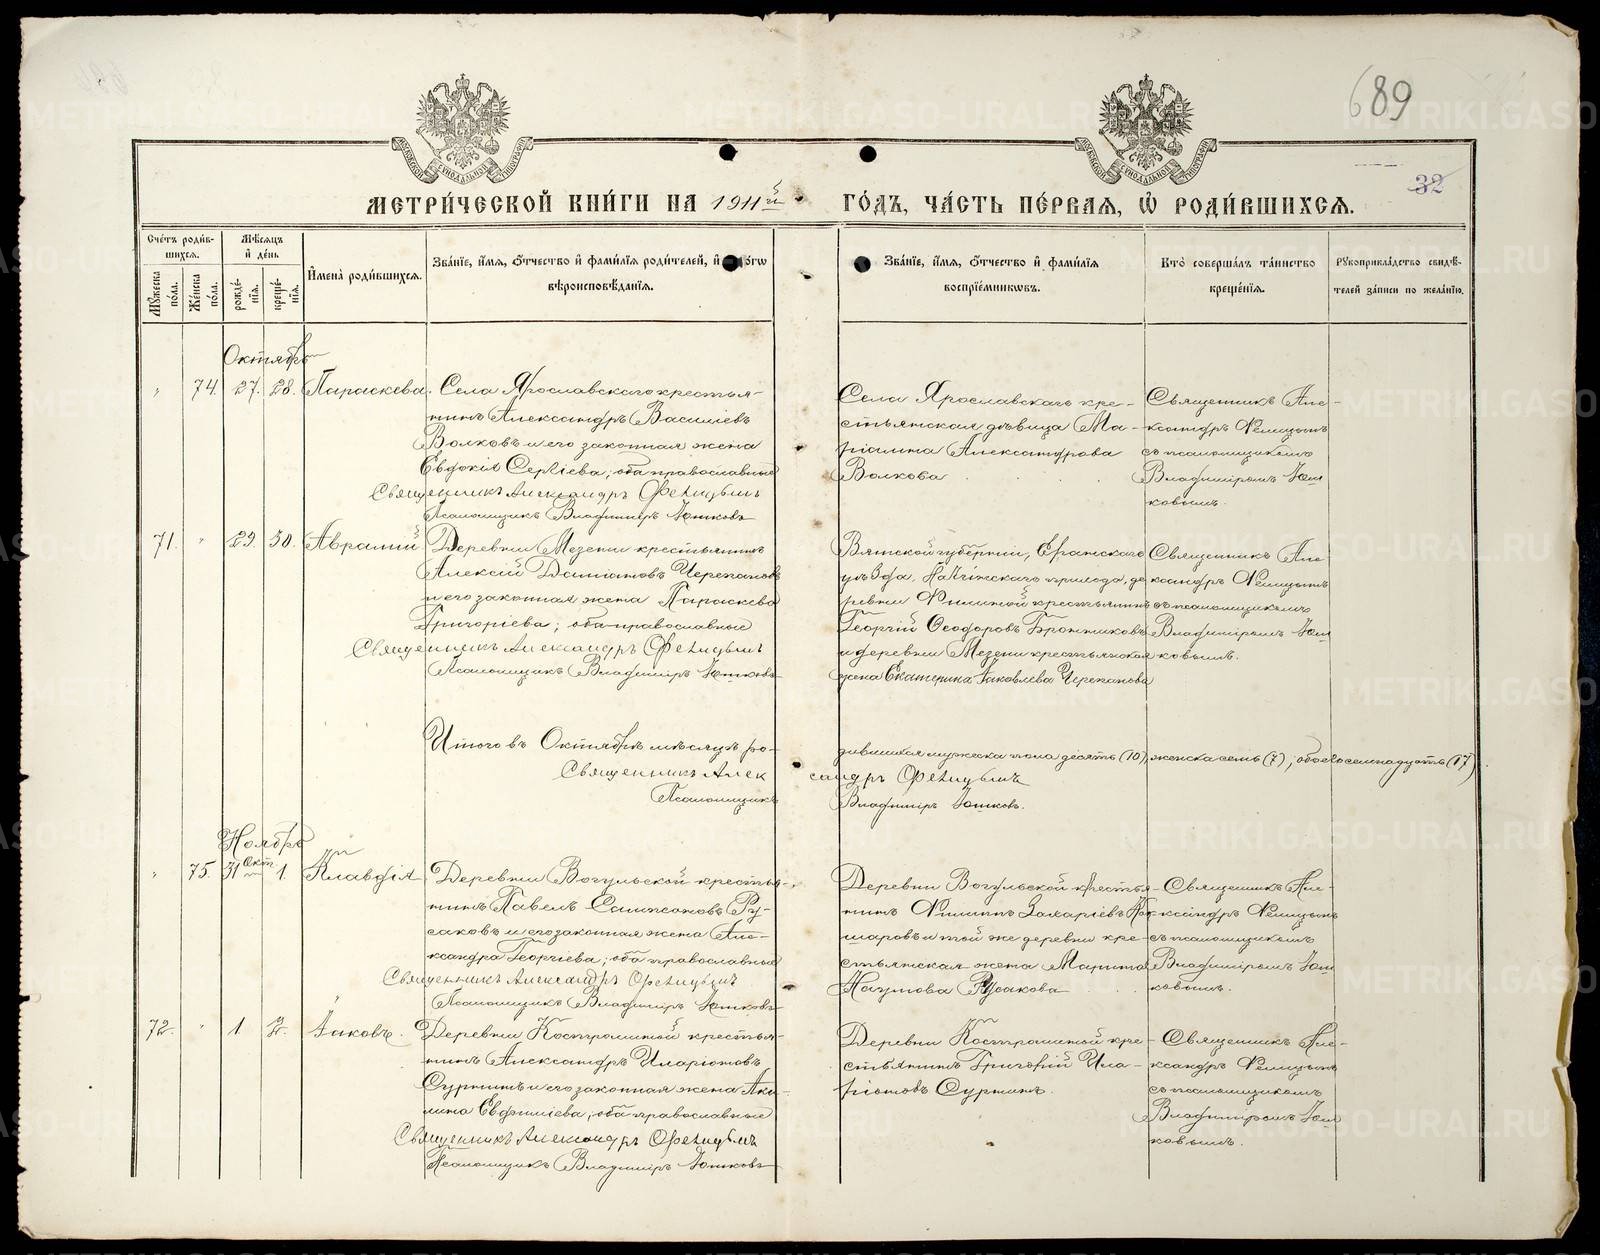 689
32
МЕТРИ́ЧЕСКОЙ КНИ́ГИ НА 1911й ГО́ДЪ, ЧА́СТЬ ПЕ́РВАЯ, Ѿ РОДИ́ВШИХСЯ.
Сче́тъ роди́вшихся.
Мѣ́сяцъ и де́нь
Мꙋ́жеска по́ла.
Же́нска по́ла.
рожде́нїя.
креще́нїя.
Имена̀ роди́вшихся.
Зва́нїе, и́мя, о́тчество и фами́лїя роди́телей, и
вѣроисповѣ́данїя.
Зва́нїе, и́мя, о́тчество и фами́лїя
воспрїе́мниковъ.
Кто̀ соверша́лъ та́инство
креще́нїя.
Рꙋкоприкла́дство свидѣ́телей за́писи по жела́нїю.
Октябрь
" 74. 27. 28. Параскева. Села Ярославскаго крестья-
нинъ Александръ Василіевъ
Волковъ и его законная жена
Евдокія Сергіева; оба православные
Священникъ Александръ Фелицынъ
Псаломщикъ Владиміръ Юшковъ
Села Ярославскаго кре-
стьянская дѣвица Ма-
Александрова
Волкова
Священникъ Але-
ксандръ Фелицынъ
съ псаломщикомъ
Владиміромъ Юш
ковымъ.
71. " 29. 30. Аврамій Деревни Мезени крестьянинъ
Алексій Даміановъ Черепановъ
и его законная жена Параскева
Григоріева; оба православные
Священникъ Александръ Фелицынъ
Псаломщикъ Владиміръ Юшковъ
Вятской губерніи, Еранскаго
уѣзда, прихода, де
ревни крестьянинъ
Георгій Ѳеодоровъ Бронниковъ
и деревни Мезени крестьянская
жена Екатерина Іаковлева Черепанова
Священникъ Але
ксандръ Фелицынъ
съ псаломщикомъ
Владиміромъ Юш
ковымъ.
Итого въ Октябрѣ мѣсяцѣ ро-
дившихся мужеска пола десять (10), женска семь (7), обоего семнадцать (17)
Священникъ Александръ Фелицынъ
Псаломщикъ Владиміръ Юшковъ.
Ноябрь
" 75. 31 Окт. 1. Клавдія Деревни Вогульской крестья-
нинъ Павелъ Сампсоновъ Ру-
саковъ и его законная жена Але-
ксандра Георгіева; оба православные
Священникъ Александръ Фелицынъ
Псаломщикъ Владиміръ Юшковъ
Деревни Вогульской крестья-
нинъ Филиппъ Захаріевъ Ко-
шаровъ и той же деревни кре-
стьянская жена Марина
Наумова Русакова
Священникъ Але-
ксандръ Фелицынъ
съ псаломщикомъ
Владиміромъ Юш
ковымъ.
72. " 1 2. Іаковъ. Деревни Костроминой крестья-
нинъ Александръ Иларіоновъ
Суринъ и его законная жена Аки-
лина Евфиміева; оба православные
Священникъ Александръ Фелицынъ
Псаломщикъ Владиміръ Юшковъ
Деревни Костроминой кре-
стьянинъ Григорій Ила-
ріоновъ Суринъ.
Священникъ Але-
ксандръ Фелицынъ
съ псаломщикомъ
Владиміромъ Юш
ковымъ.
METRIKI.GASO-URAL.RU